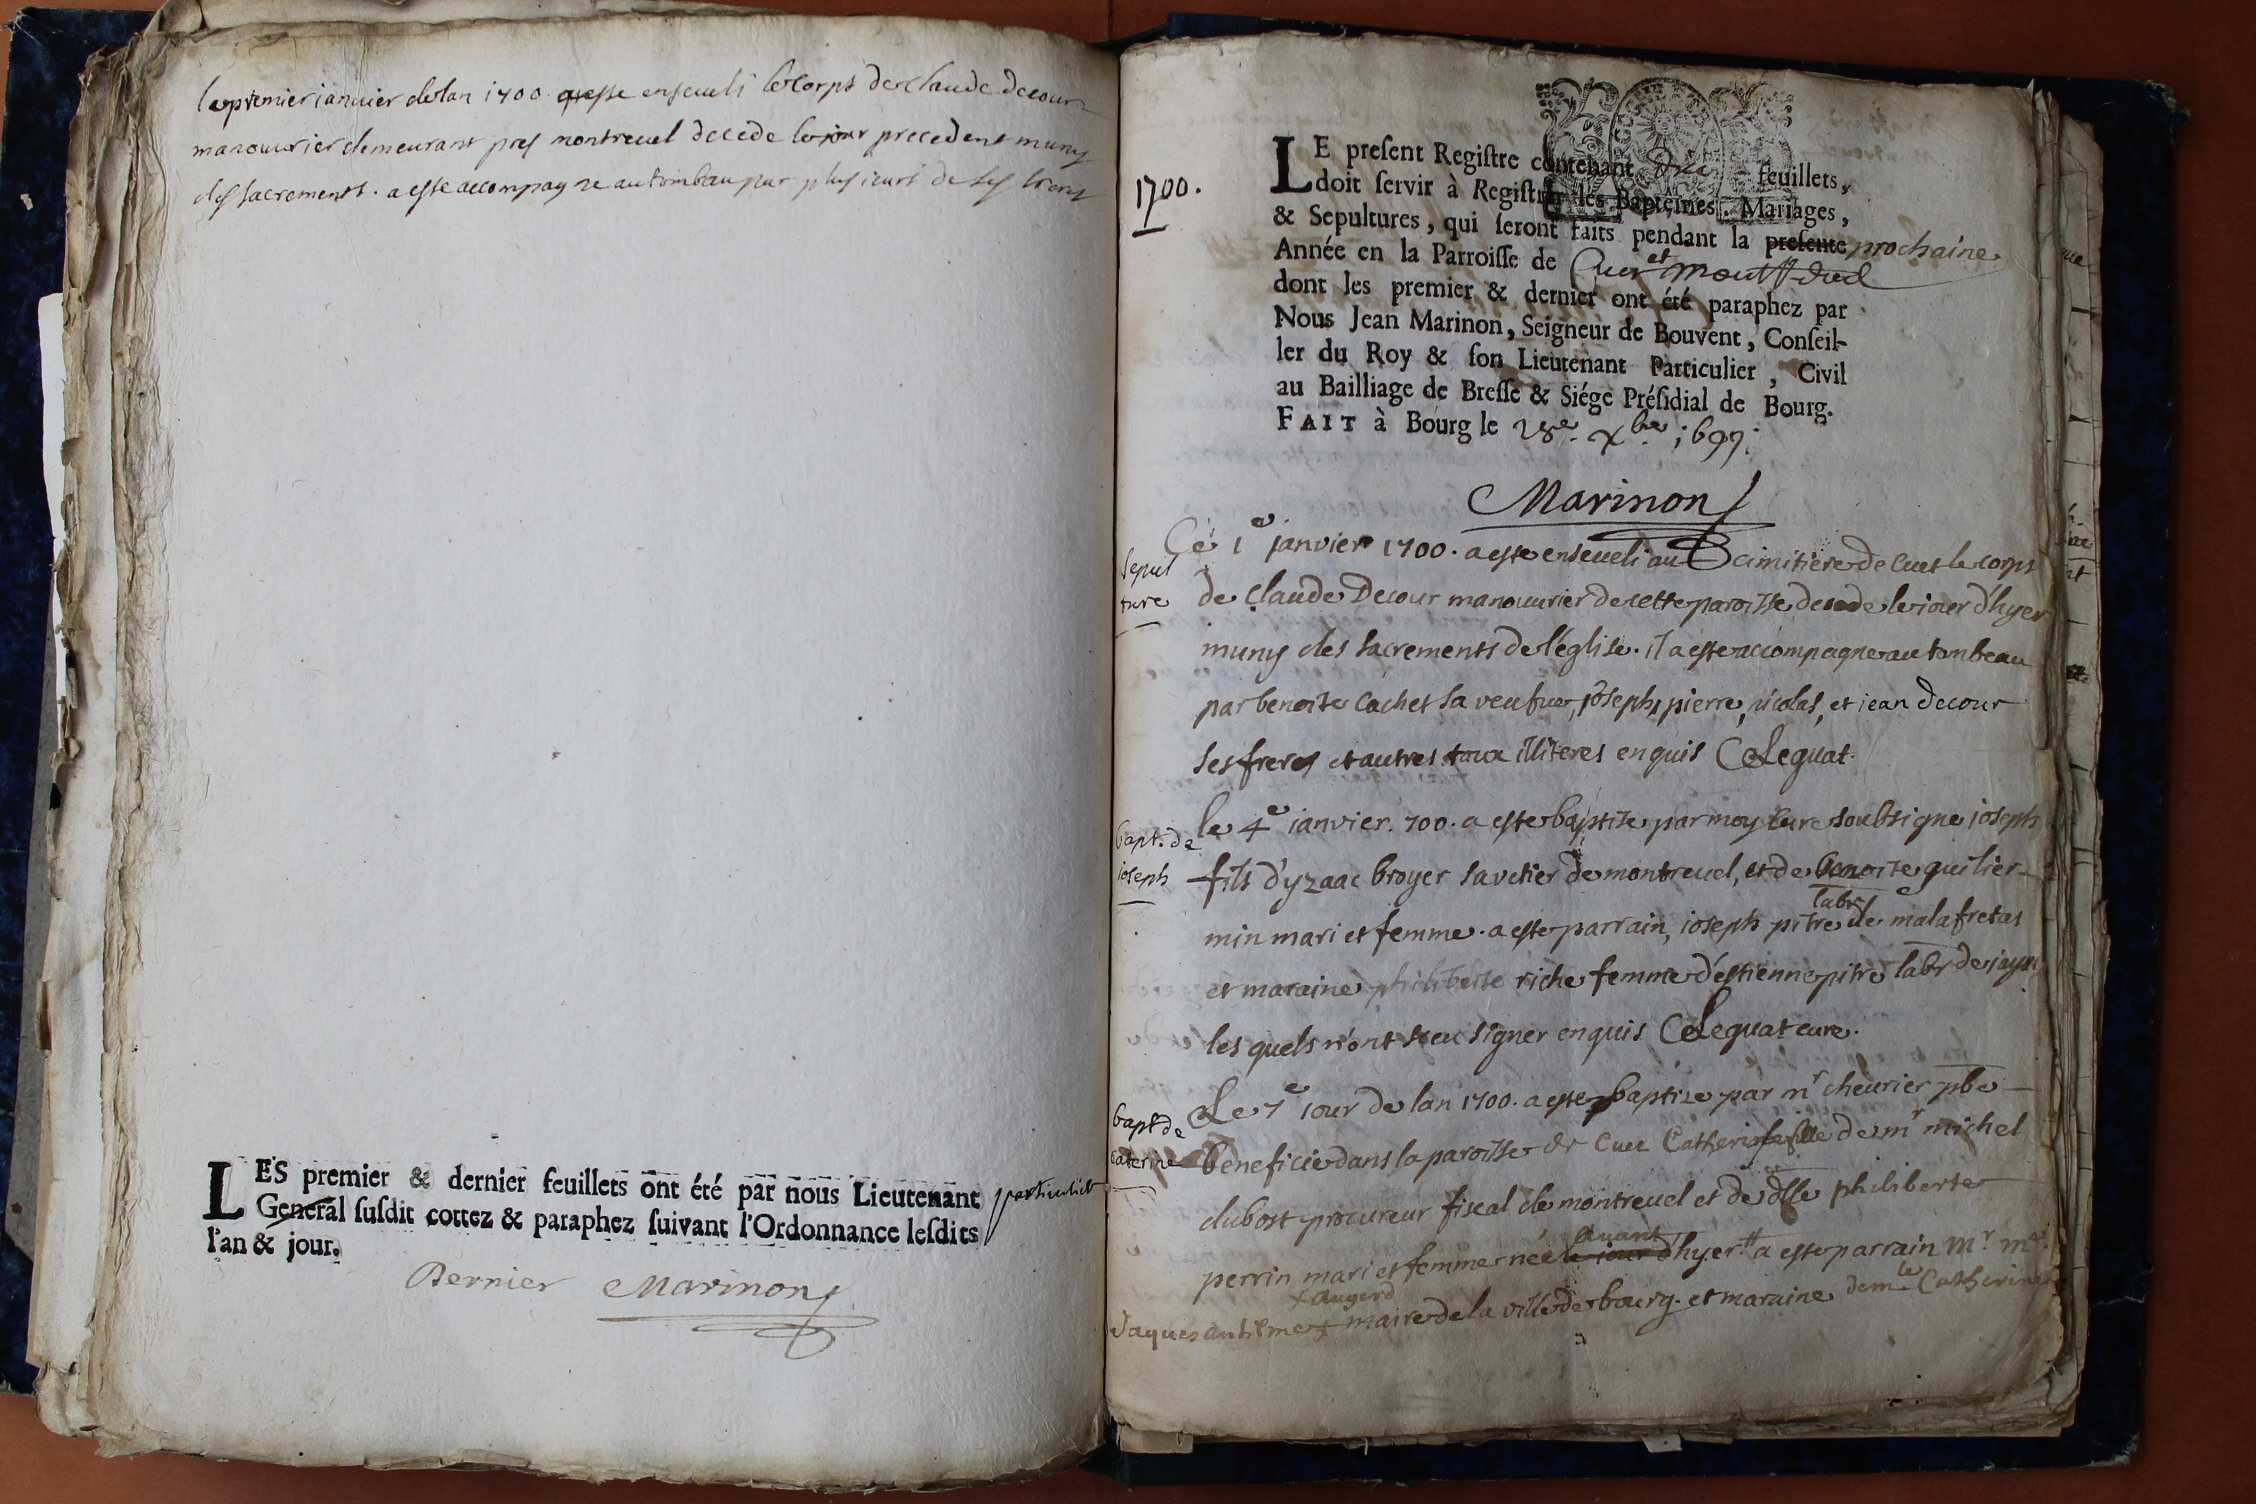 le premier ianvier de lan 1700. a este enseveli le corps de claude decour
manouvrier demeurant pres montrevel decede le iour precedent muny
des sacrements. a este accompagne au tombeau par plusieurs de ses
LES premier & dernier feuillets ont été par nous Lieutenant particulier
General susdit cottez & paraphez suivant l'Ordonnance lesdits
l'an & jour.
Bernier Marinon
1700.
LE present Registre contenant feuillets,
doit servir à Registrer les Baptêmes, Mariages,
& Sepultures, qui seront faits pendant la presente prochaine
Année en la Parroisse de Cuet et
dont les premier & dernier ont été paraphez par
Nous Jean Marinon, Seigneur de Bouvent, Conseil-
ler du Roy & son Lieutenant Particulier, Civil
au Bailliage de Bresse & Siége Présidial de Bourg.
FAIT à Bourg le 28e. xbre 1699.
Marinon
Sepul
ture
Ce 1e janvier 1700. a este enseveli au cimitiere de Cuet le corps
de Claude Decour manouvrier de cette paroisse decede le iour d'hyer
muny des sacrements de l'églize. il a este accompagne au tombeau
par benoite cachet sa veufve, joseph, pierre, nicolas, et jean decour
ses freres et autres tous illiteres enquis CLeguat.
bapt. de
ioseph
le 4e ianvier. 700. a este baptize par moy cure soubsigne ioseph
fils d'yzaac broyer savetier de montrevel, et de benoite guilier-
min mari et femme. a este parrain, ioseph pitre labr de malafretas
et maraine philiberte riche femme d'estienne pitre labr de iayat
les quels n'ont sceu signer enquis CLeguat cure.
bapt de
caterine
Le 7e iour de lan 1700. a este baptize par mr cheurier pbre
beneficie dans la paroisse de Cuet Catherine fille de mr michel
dubost procureur fiscal de montrevel et de dlle philiberte
perrin mari et femme née le iour avant d'hyer. a este parrain Mr. Mre.
Jaques anthelme x augerd maire de la ville de bourg. et maraine demlle Catherine